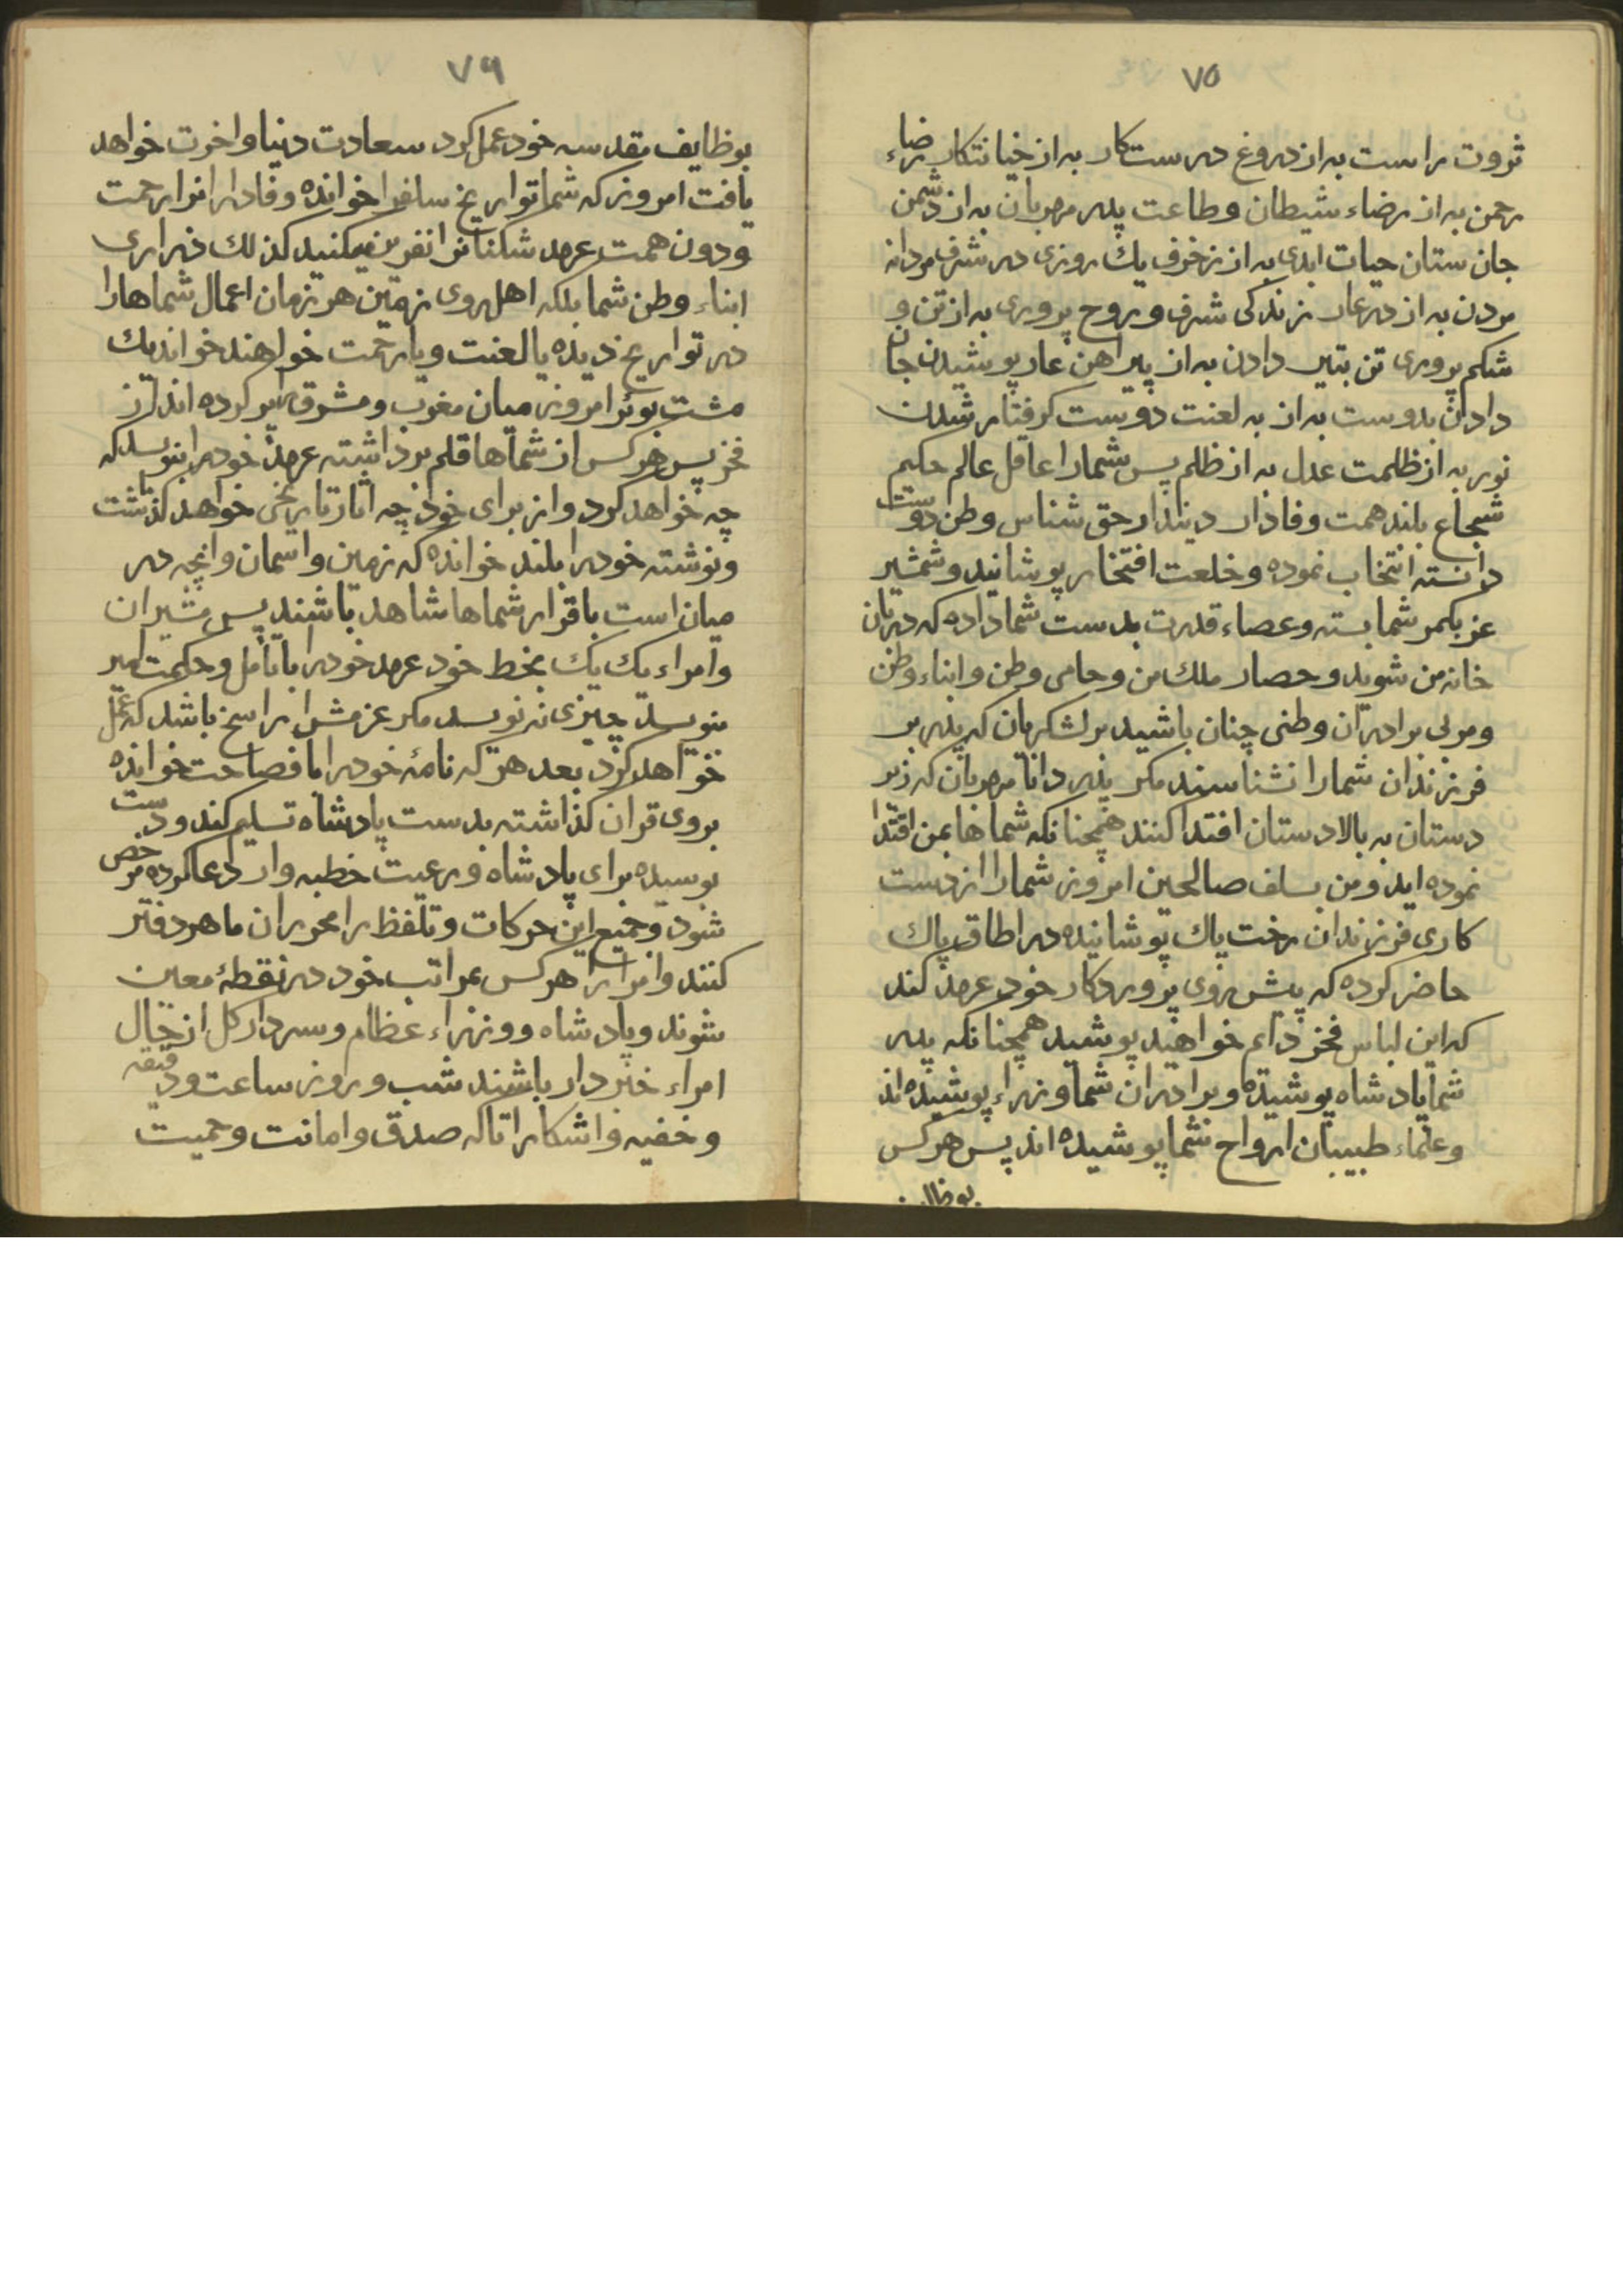 ۷۵
ثروت راست به از دروغ درستکار به از خیانتکار رضاء
رحمن به از رضاء شیطان وطاعت پدر مهربان به از دشمن
جان ستان حیات ابدی به از زخرف یك روزی در شرف مردانه
مردن به از در عار زندکی شرف وروح پروری به از تن و
شکم پروری تن بتیر دادن به از پیراهن عار پوشیدن جان
دادن بدوست به از به لعنت دوست کرفتار شدن
نور به از ظلمت عدل به از ظلم پس شمارا عاقل عالم حکیم
شجاع بلند همت وفادار دیندار حق شناس وطن دوست
دانسته انتخاب نموده وخلعت افتخار پوشانید وشمشیر
عز بکمر شما بسته وعصاء قدرت بدست شما داده که دربان
خانه من شوید وحصار ملك من وحامی وطن وابناء وطن
ومربی برادران وطنی چنان باشید بر لشکریان که پدر بر
فرزندان شمارا نشناسند مکر پدر دانا مهربان که زیر
دستان به بالادستان افتدا کنند همچنانکه شماها بمن اقتدا
نموده اید ومن بسلف صالحین امروز شمارا از دست
کاری فرزندان رخت پاك پوشانیده در اطاق پاك
حاضر کرده که پیش روی پروردکار خود عهد کند
که این لباس فخر دایم خواهند پوشید همچنانکه پدر
شما پادشاه پوشیده وبرادران شما وزراء پوشیده اند
وعلماء طبیبان ارواح شما پوشیده اند پس هر کس
بوظا
۷۶
بوظایف مقدسه خود عمل کرد سعادت دنیا واخرت خواهد
یافت امروز که شما تواریخ سافرا خوانده وفادارانرا رحمت
ودون همت عهد شکنانرا نفرین میکنید کذلك ذراری
ابناء وطن شما بلکه اهل روی زمین هر زمان اعمال شماهارا
در تواریخ دیده یا لعنت ویا رحمت خواهند خواند یك
مشت بوئر امروز میان مغرب ومشرق را پر کرده اند از
فخر پس هر کس از شماها قلم برداشته عهد خودرا بنویسد که
چه خواهد کرد واز برای خود چه اثار تاریخی خواهد کذاشت
ونوشته خودرا بلند خوانده که زمین واسمان وانچه در
میان است باقرار شماها شاهد باشند پس مشیران
وامراء یك یك بخط خود عهد خودرا باتأمل وحکمت امیر
بنویسد چیزی نه نویسد مکر عزمش را راسخ باشد که عمل
خواهد کرد بعد هر که نامهٔ خودرا بافصاحت خوانده
بروی قران کذاشته بدست پادشاه تسلیم کند ودست
بوسیده برای پادشاه ورعیت خطبه وار دعا کرده مرخص
شود وجمیع این حرکات وتلفظ را محرران ماهر دفتر
کنند وامراء را هر کس بمراتب خود در نقطهٔ معین
شوند وپادشاه ووزراء عظام وسردار کل از حال
امراء خبردار باشند شب وروز ساعت ودقیقه
وخفیه واشکارا تاکه صدق وامانت وحمیت